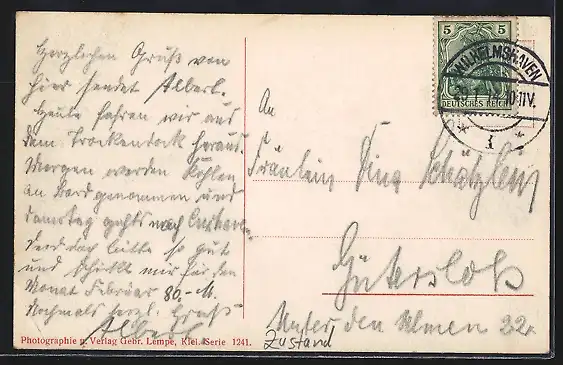 Herzlichen Gruß von
hier sendet Albert.
Heute fahren wir aus
dem Trockendock heraus.
Morgen werden Kohlen
an Bord genommen und
damstag gehts nach Cuxhaven.
Seid doch bitte so gut
und schickt mir für den
Monat Februar 80.- M.
Nochmals herzl. Gruß
Albert
Photographie u. Verlag Gebr. Lempe, Kiel. Serie 1241.
5 5
DEUTSCHES REICH
WILHELMSHAVEN
10-11V.
An
Fräulein Sina Schätzlein
Gütersloh
Unter den Ulmen 32.
Zustand